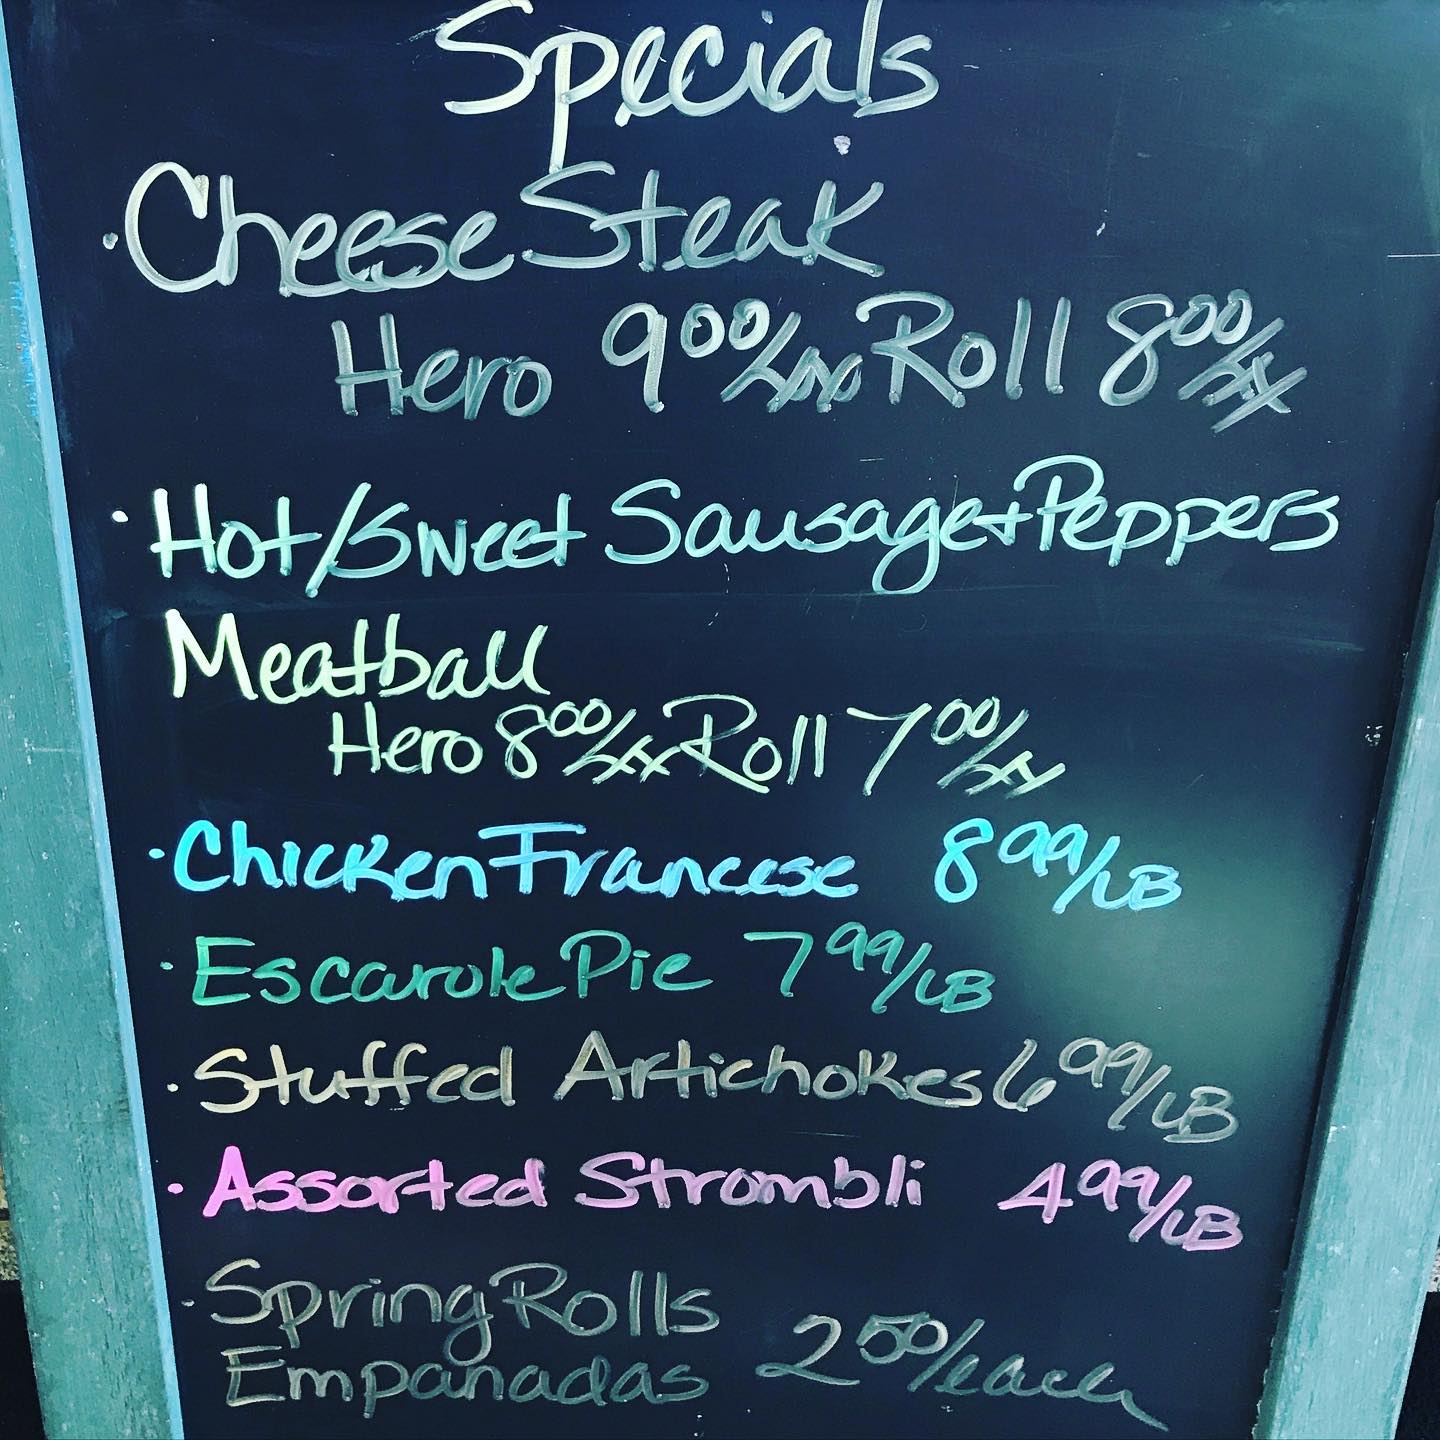 Specials
• Cheese Steak
Hero 9.00/xx Roll 8.00/xx
• Hot/Sweet Sausage + Peppers
Meatball
Hero 8.00/xx Roll 7.00/xx
• Chicken Francese 8.99/LB
• Escarole Pie 7.99/LB
• Stuffed Artichokes 6.99/LB
• Assorted Strombli 4.99/LB
• Spring Rolls
Empanadas 2.50/each